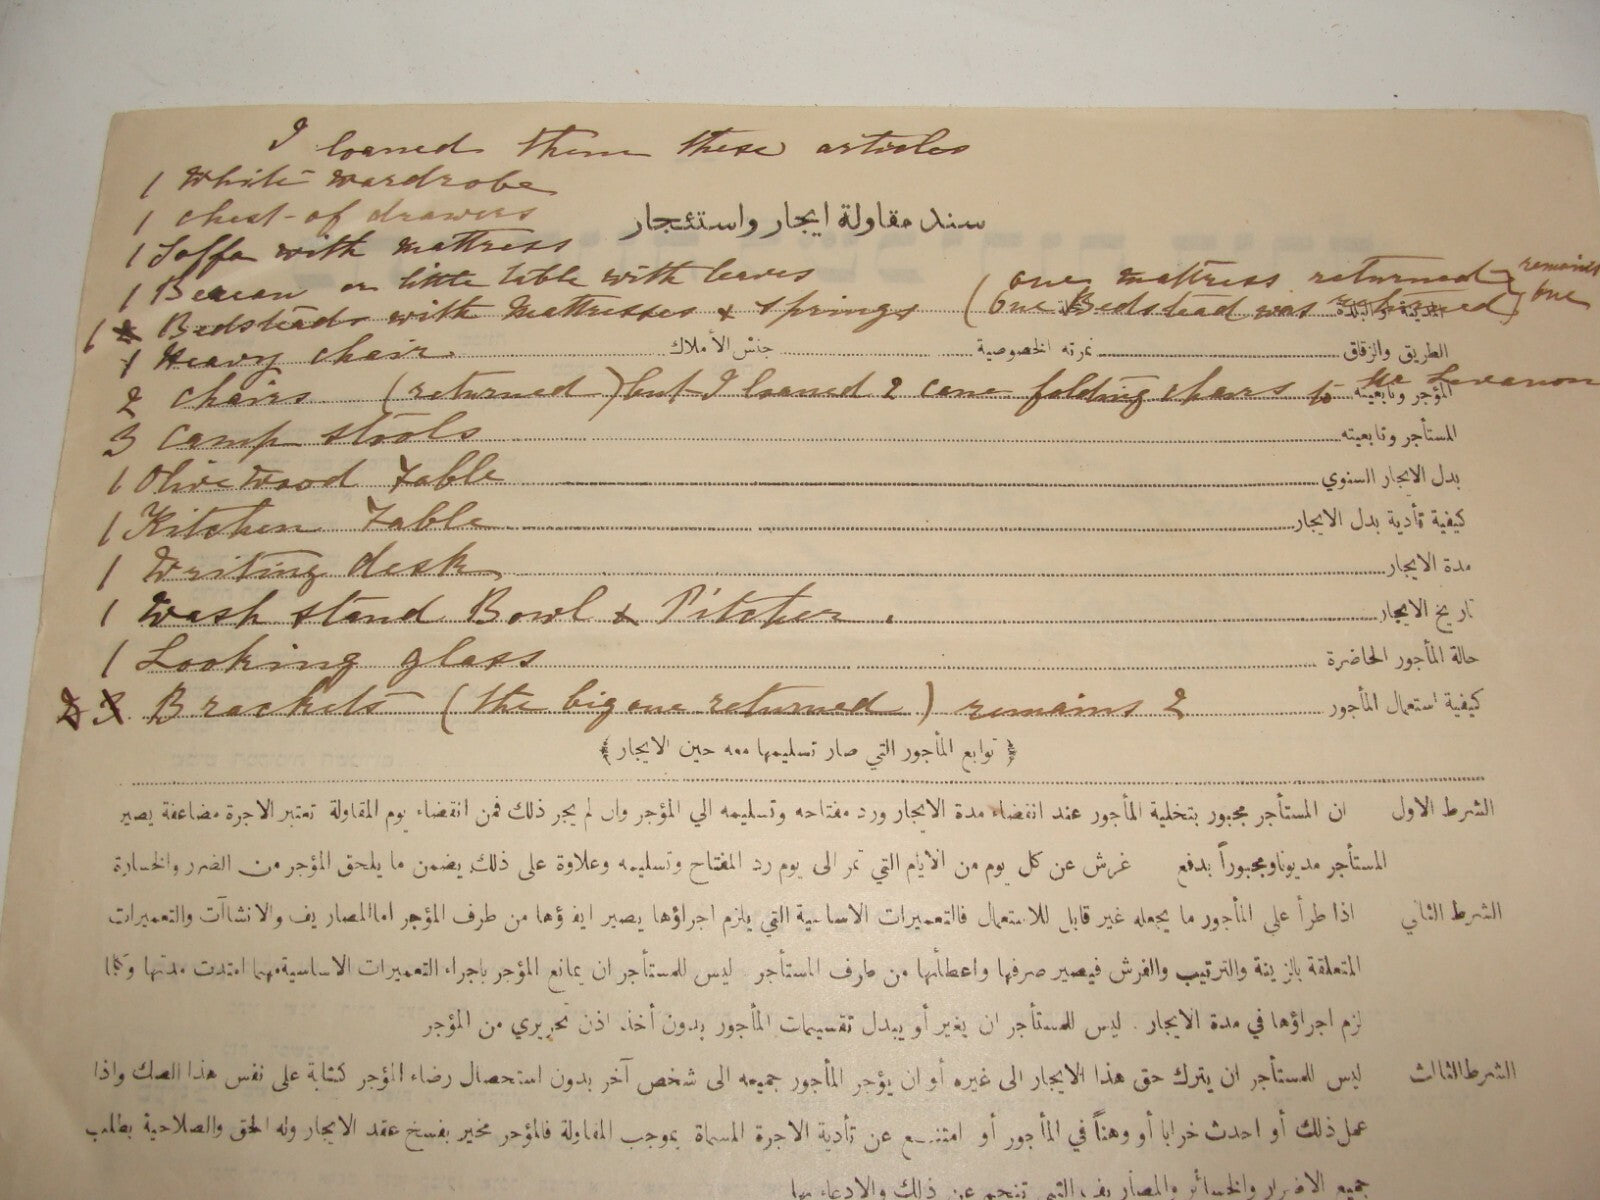 I loaned them these articles
1 White wardrobe
1 chest of drawers
سند مقاولة ايجار واستئجار
1 Soffa with mattress
1 Bureau or little table with leaves (one mattress returned remains
1 Bedsteads with mattresses & springs (one Bedstead was returned) one
1 Heavy chair.
جنس الأملاك نمرته الخصوصية الطريق والزقاق
2 chairs (returned) but I loaned 2 cane folding chairs to the Levanon
المؤجر وتابعيته
3 camp stools
المستأجر وتابعيته
1 Olive wood table
بدل الايجار السنوي
1 Kitchen table
كيفية تأدية بدل الايجار
1 Writing desk
مدة الايجار
1 Wash stand Bowl & Pitcher.
تاريخ الايجار
1 Looking glass
حالة المأجور الحاضرة
Brackets (the big one returned) remains 2
كيفية استعمال المأجور
﴿ توابع المأجور التي صار تسليمها معه حين الايجار ﴾
الشرط الاول ان المستأجر مجبور بتخلية المأجور عند انقضاء مدة الايجار ورد مفتاحه وتسليمه الي المؤجر وان لم يجر ذلك فمن انقضاء يوم المقاولة تعتبر الاجرة مضاعفة يصير
المستأجر مديونا ومجبوراً بدفع غرش عن كل يوم من الايام التي تمر الى يوم رد المفتاح وتسليمه وعلاوة على ذلك يضمن ما يلحق المؤجر من الضرر والخسارة
الشرط الثاني اذا طرأ على المأجور ما يجعله غير قابل للاستعمال فالتعميرات الاساسية التي يلزم اجراؤها يصير ايفاؤها من طرف المؤجر اما المصاريف والانشاآت والتعميرات
المتعلقة بالزينة والترتيب والفرش فيصير صرفها واعطائها من طرف المستأجر . ليس للمستأجر ان يمانع المؤجر باجراء التعميرات الاساسية مهما امتدت مدتها وكلما
لزم اجراؤها في مدة الايجار . ليس للمستأجر ان يغير أو يبدل تقسيمات المأجور بدون أخذ اذن تحريري من المؤجر
الشرط الثالث ليس للمستأجر ان يترك حق هذا الايجار الى غيره أو ان يؤجر المأجور جميعه الى شخص آخر بدون استحصال رضاء المؤجر كتابة على نفس هذا الصك واذا
عمل ذلك أو احدث خرابا أو وهناً في المأجور أو امتنع عن تأدية الاجرة المسماة بموجب المقاولة فالمؤجر مخير بفسخ عقد الايجار وله الحق والصلاحية بطلب
جميع الاضرار والخسائر والمصاريف التي تنجم عن ذلك والادعاء بها